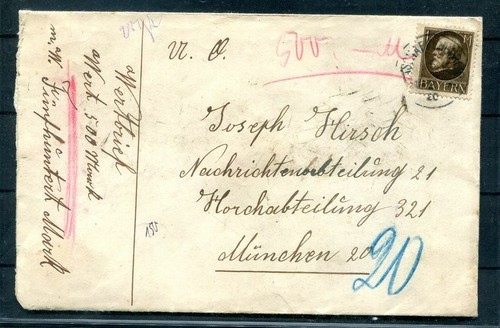 500 M
BAYERN
20
Wertbrief
Wert 500 Mark
m. W. Fünfhundert Mark
Joseph Hirsch
Nachrichtenabteilung 21
Horchabteilung 321
München 20
20